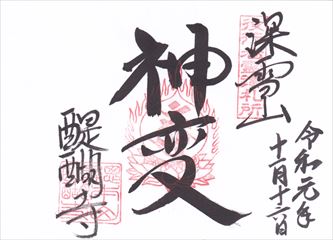 深雪山
令和元年
十一月十六日
神変
醍醐寺